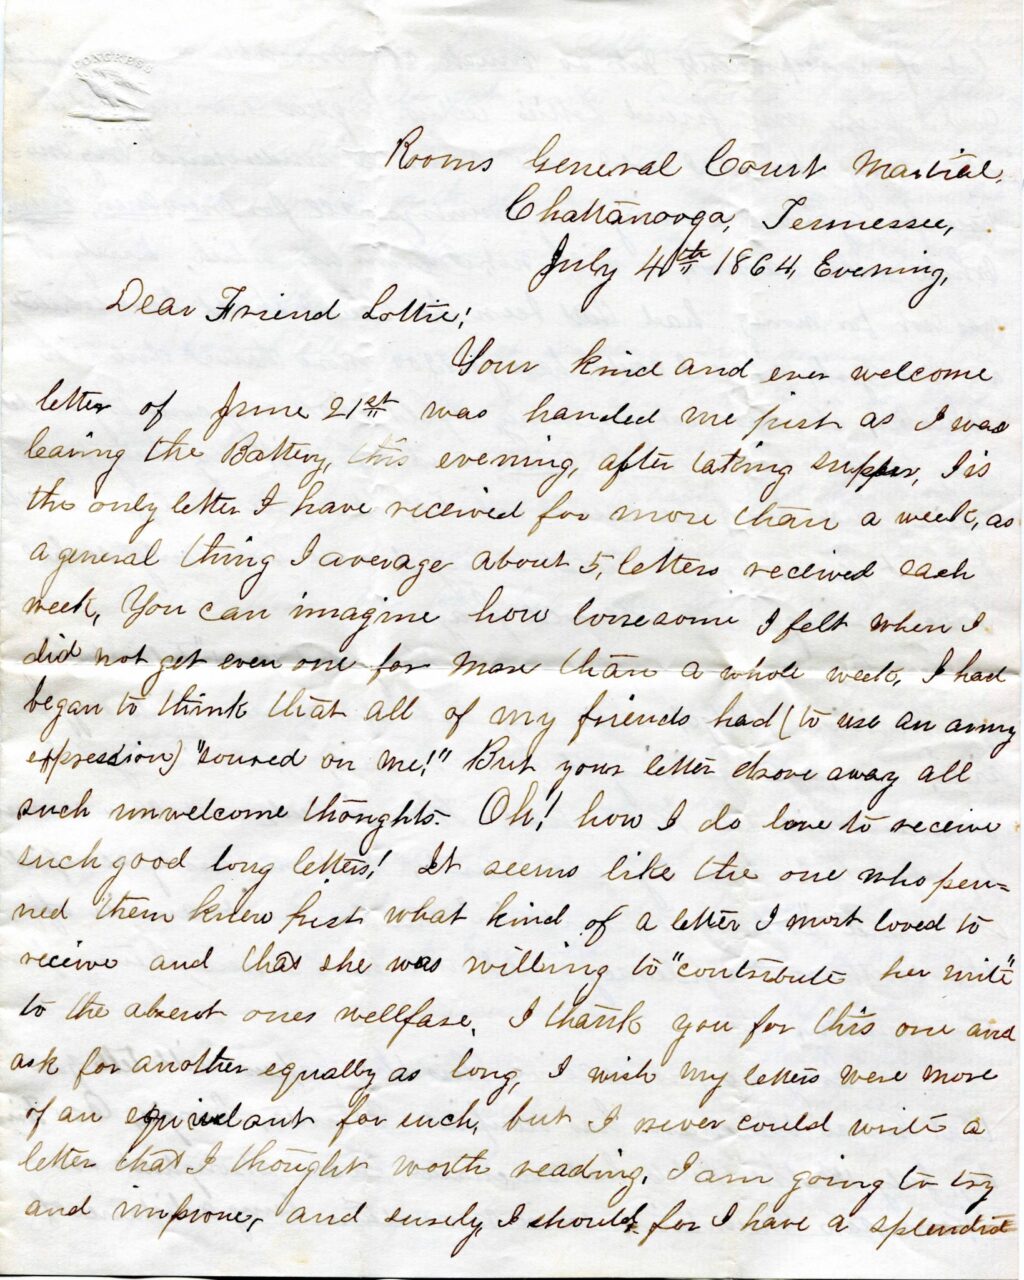 CONGRESS
Rooms General Court Martial,
Chattanooga, Tennessee,
July 4th 1864, Evening,
Dear Friend Lottie!
Your kind and ever welcome
letter of June 21st was handed me just as I was
leaving the Battery, this evening, after taking supper, I is
the only letter I have received for more than a week, as
a general thing I average about 5, letters received each
week, You can imagine how lonesome I felt when I
did not get even one for more than a whole week, I had
began to think that all of my friends had (to use an army
expression) "soured on me!" But your letter drove away all
such unwelcome thoughts. Oh! how I do love to receive
such good long letters! It seems like the one who pen-
ned them knew just what kind of a letter I most loved to
receive and that she was willing to "contribute her mite"
to the absent ones wellfare, I thank you for this one and
ask for another equally as long, I wish my letters were more
of an equivelant for such, but I never could write a
letter that I thought worth reading. I am going to try
and improve, and surely, I should for I have a splendid